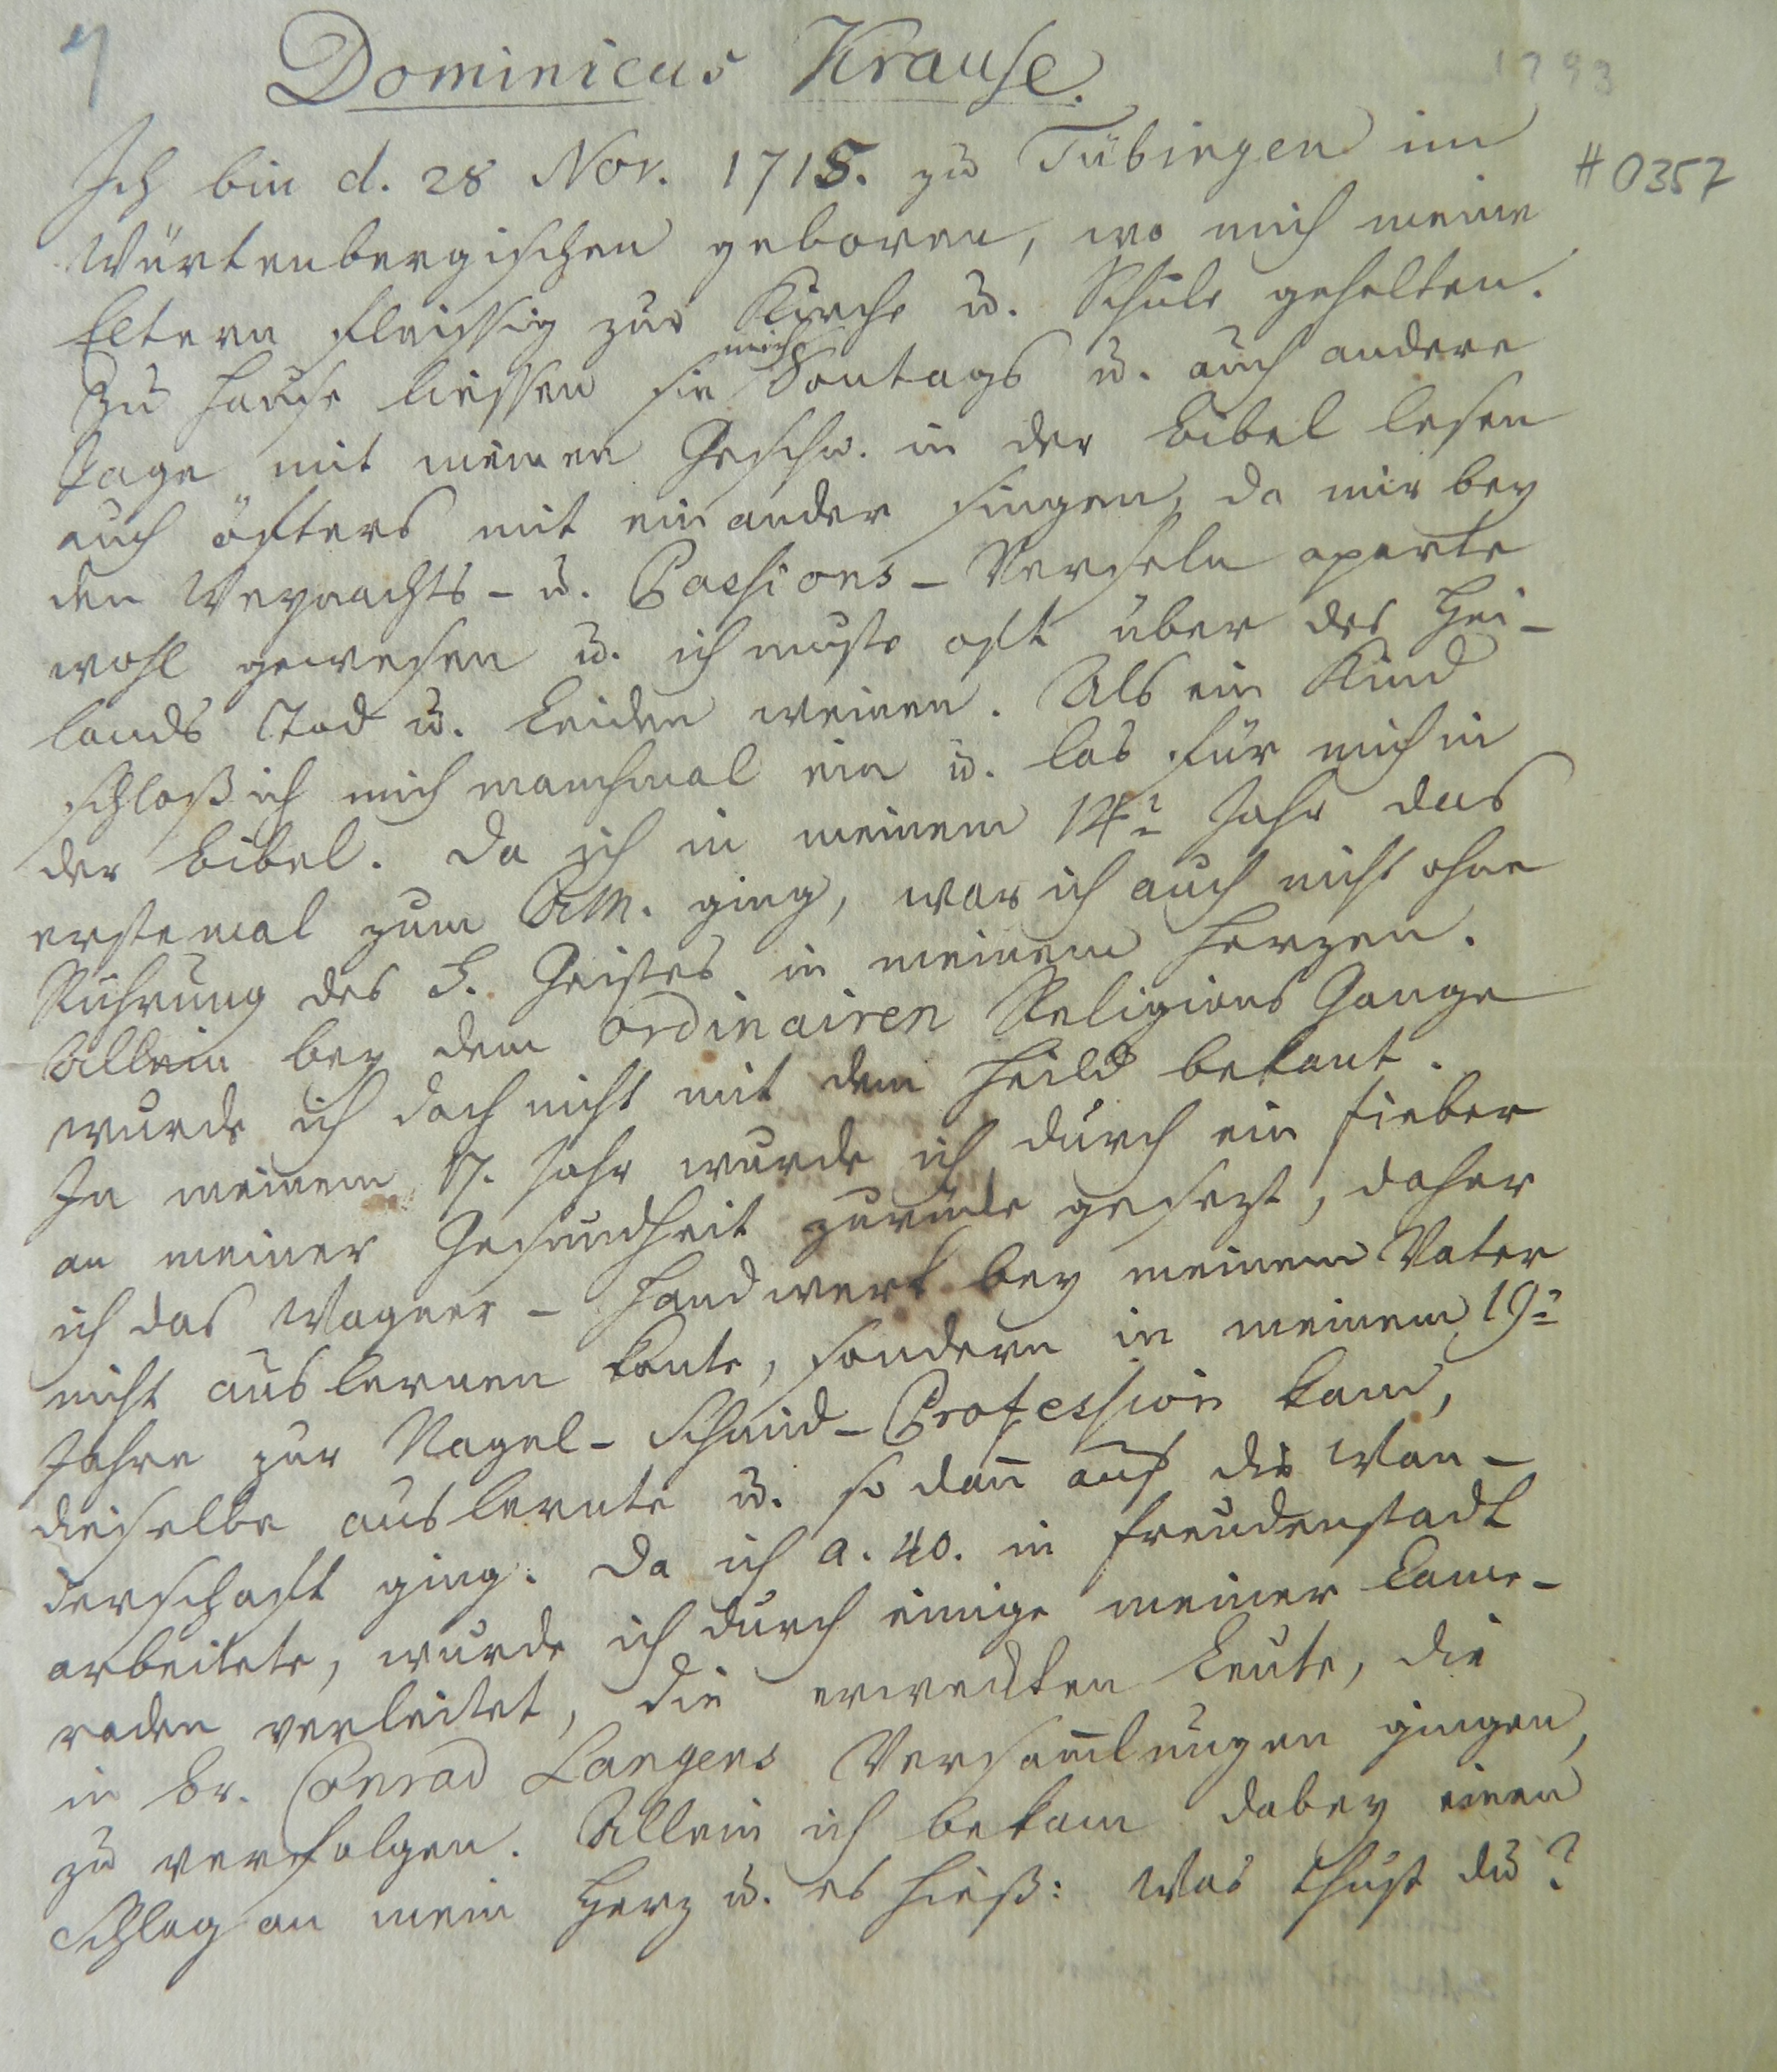 4
1793
Dominicus Krause.
#0357
Ich bin d. 28 Nov. 1715. zu Tübingen im
Würtenbergischen geboren, wo mich meine
Eltern fleissig zur Kirche u. Schule gehalten.
Zu Hause liessen sie mich Sontags u. auch andere
Tage mit meinen Geschw. in der Bibel lesen
auch öfters mit einander singen, da mir bey
den Weynachts- u. Passions-Verseln aparte
wohl gewesen u. ich muste oft über des Hei-
lands Tod u. Leiden weinen. Als ein Kind
schloß ich mich manchmal ein u. las für mich in
der Bibel. Da ich in meinem 14t Jahr das
erstemal zum AM. ging, war ich auch nicht ohne
Rührung des H. Geistes in meinem Herzen.
Allein bey dem ordinairen Religions Gange
wurde ich doch nicht mit dem Heild bekant.
In meinem 17. Jahr wurde ich durch ein Fieber
an meiner Gesundheit zurück gesezt, daher
ich das Wagner-Handwerk bey meinem Vater
nicht auslernen konte, sondern in meinem 19t
Jahre zur Nagel-Schmid-Profession kam,
dieselbe auslernte u. so dan̅ auf die Wan-
derschaft ging. Da ich a. 40. in Freudenstadt
arbeitete, wurde ich durch einige meiner Came-
raden verleitet, die erweckten Leute, die
in Br. Conrad Langens Versam̅lungen gingen,
zu verfolgen. Allein ich bekam dabey einen
Schlag an mein Herz u. es hieß: Was thust du?